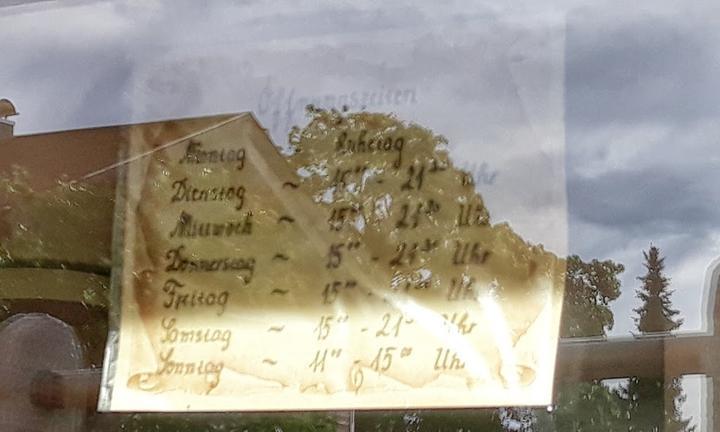 Öffnungszeiten
Montag Ruhetag
Dienstag ~ 15°° - 21³⁰ Uhr
Mittwoch ~ 15°° - 21³⁰ Uhr
Donnerstag ~ 15°° - 21³⁰ Uhr
Freitag ~ 15°° - Uhr
Samstag ~ 15°° - 21³⁰ Uhr
Sonntag ~ 11°° - 15°° Uhr